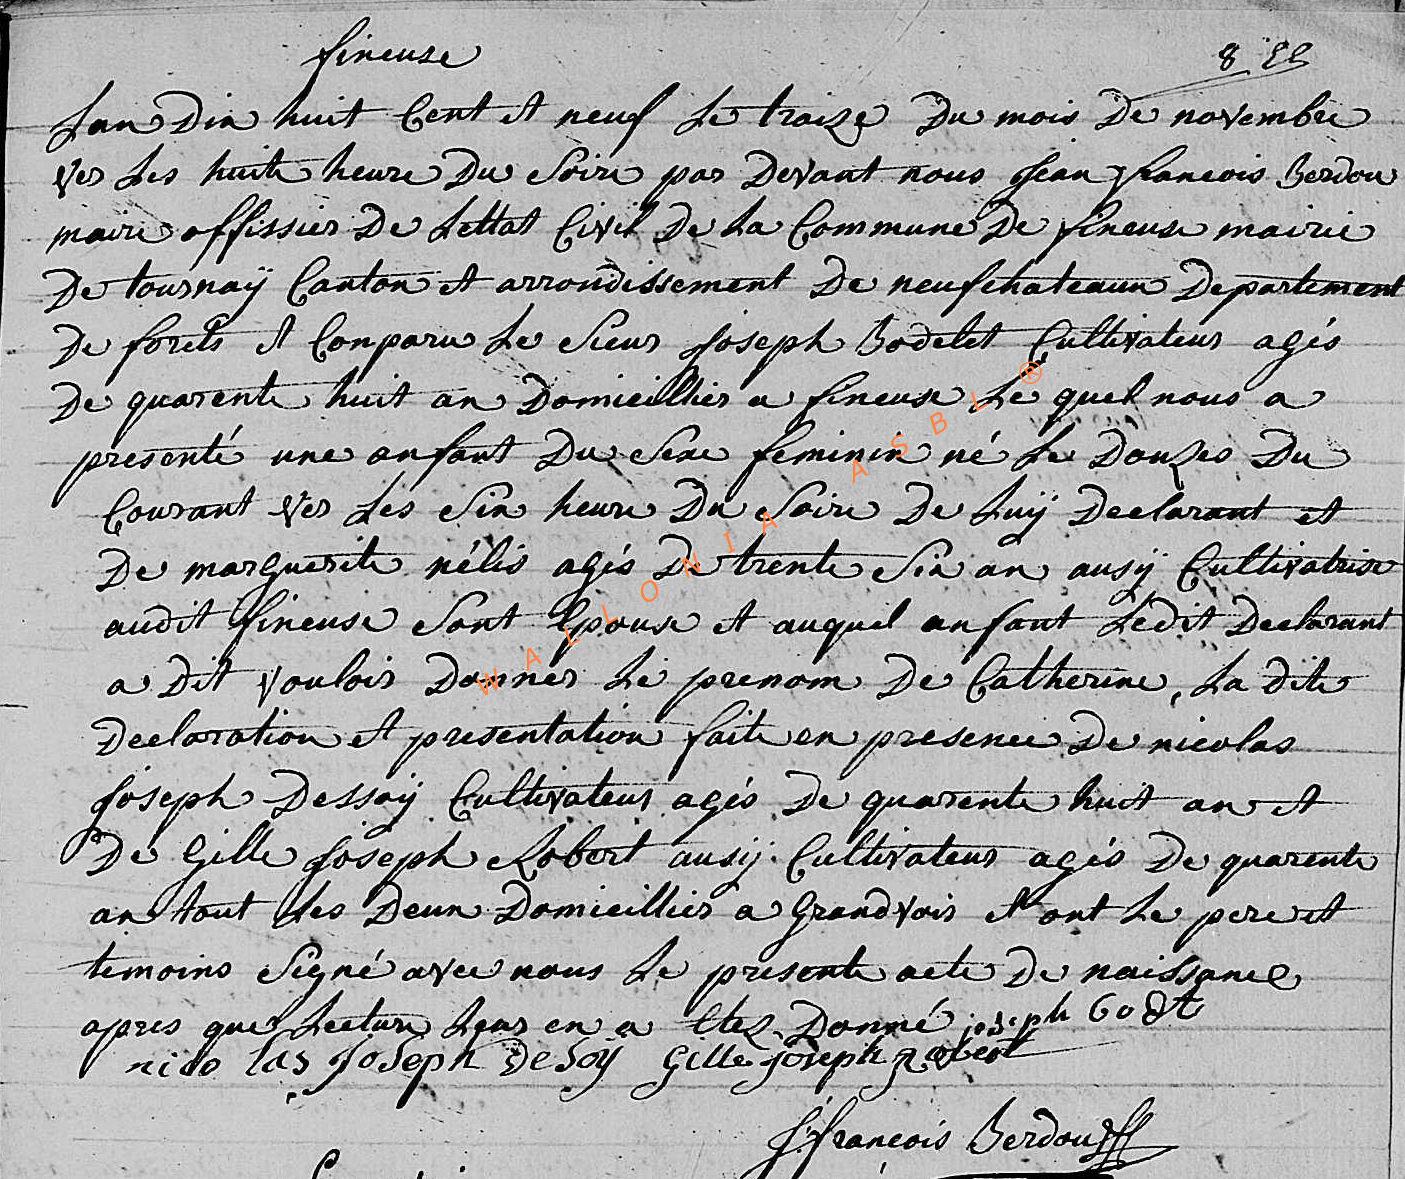 fineuse
8 
Lan Dix huit Cent et neuf Le traize Du mois De novembre
vers Les huite heure Du Soire par Devant nous Jean françois Berdou
maire offissier De Lettat Civil De La Commune De fineuse mairie
De tournaÿ Canton et arrondissement De neufchateaux Departement
De foréts et Conparu Le Sieur Joseph Bodelet Cultivateur agés
De quarente huit an Domicillier a fineuse Le quel nous a
presenté une anfant Du Sexe feminin né Le Douzes Du
Courant vers Les Six heure Du Soire De Luÿ Declarant et
De marguerite nélis agés De trente Six an ausÿ Cultivatrise
audit fineuse Sont Epouse et auquel anfant Ledit Declarant
a Dit vouloir Donner Le prenom De Catherine, La dite
Declaration et presentation faite en presence De nicolas
Joseph Dessoÿ Cultivateur agés De quarente huit an et
De Gille Joseph Robert ausÿ Cultivateur agés De quarente
an tout Les Deux Domicillier a Grandvoir et ont Le pere et
temoins Signé avec nous Le presente acte De naissance
apres que Lecture Leur en a Etez Donné joseph
nico las Joseph DeSoÿ Gille joseph robert
J. françois Berdou
WALLONIA ASBL ®